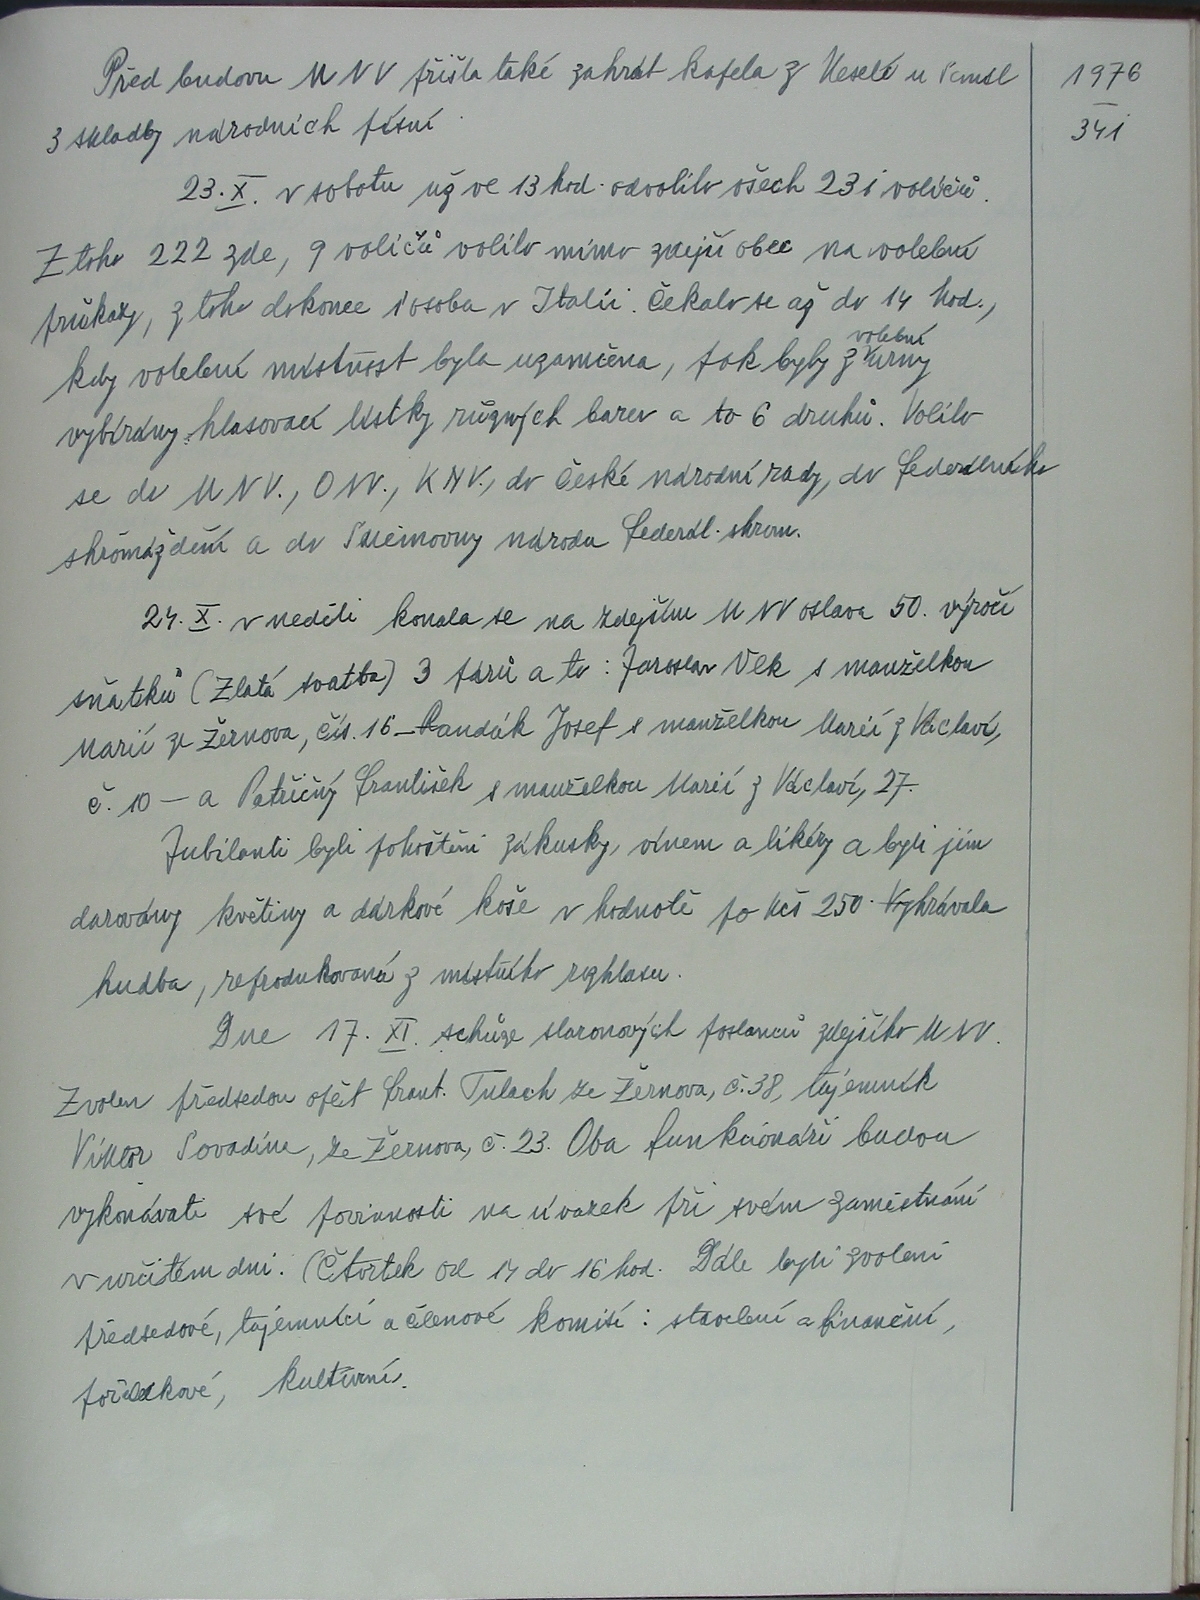 Před budovu MNV přišla také zahrát kapela z Veselé u Semil
1976
341
3 skladby národních písní
23. X. v sobotu už ve 13 hod. odvolilo všech 231 voličů.
Z toho 222 zde, 9 voličů volilo mimo zdejší obec na volební
průkazy, z toho dokonce 1 osoba v Itálii. Čekalo se až do 14 hod.,
kdy volební místnost byla uzamčena, pak byly z volební urny
vybírány hlasovací lístky různých barev a to 6 druhů. Volilo
se do MNV., ONV., KNV., do České národní rady, do federálního
shromáždění a do Sněmovny národu federál. shrom.
24. X. v neděli konala se na zdejším MNV oslava 50. výročí
sňatků (Zlatá svatba) 3 párů a to: Jaroslav Vlk s manželkou
Marií ze Žernova, čís. 16 – Randák Josef s manželkou Marií z Václaví,
č. 10 – a Petřičný František s manželkou Marií z Václaví, 27.
Jubilanti byli pohoštěni zákusky, vínem a likéry a byli jim
darovány květiny a dárkové koše v hodnotě po Kčs 250. Vyhrávala
hudba, reprodukovaná z místního rozhlasu.
Dne 17. XI. schůze staronových poslanců zdejšího MNV.
Zvolen předsedou opět Frant. Tulach ze Žernova, č. 38, tajemník
Viktor Povadine, ze Žernova, č. 23. Oba funkcionáři budou
vykonávati své povinnosti na úvazek při svém zaměstnání
v určitém dni. (Čtvrtek od 14 do 16 hod. Dále byli zvoleni
předsedové, tajemníci a členové komisí: stavební a finanční,
pořádkové, kulturní.